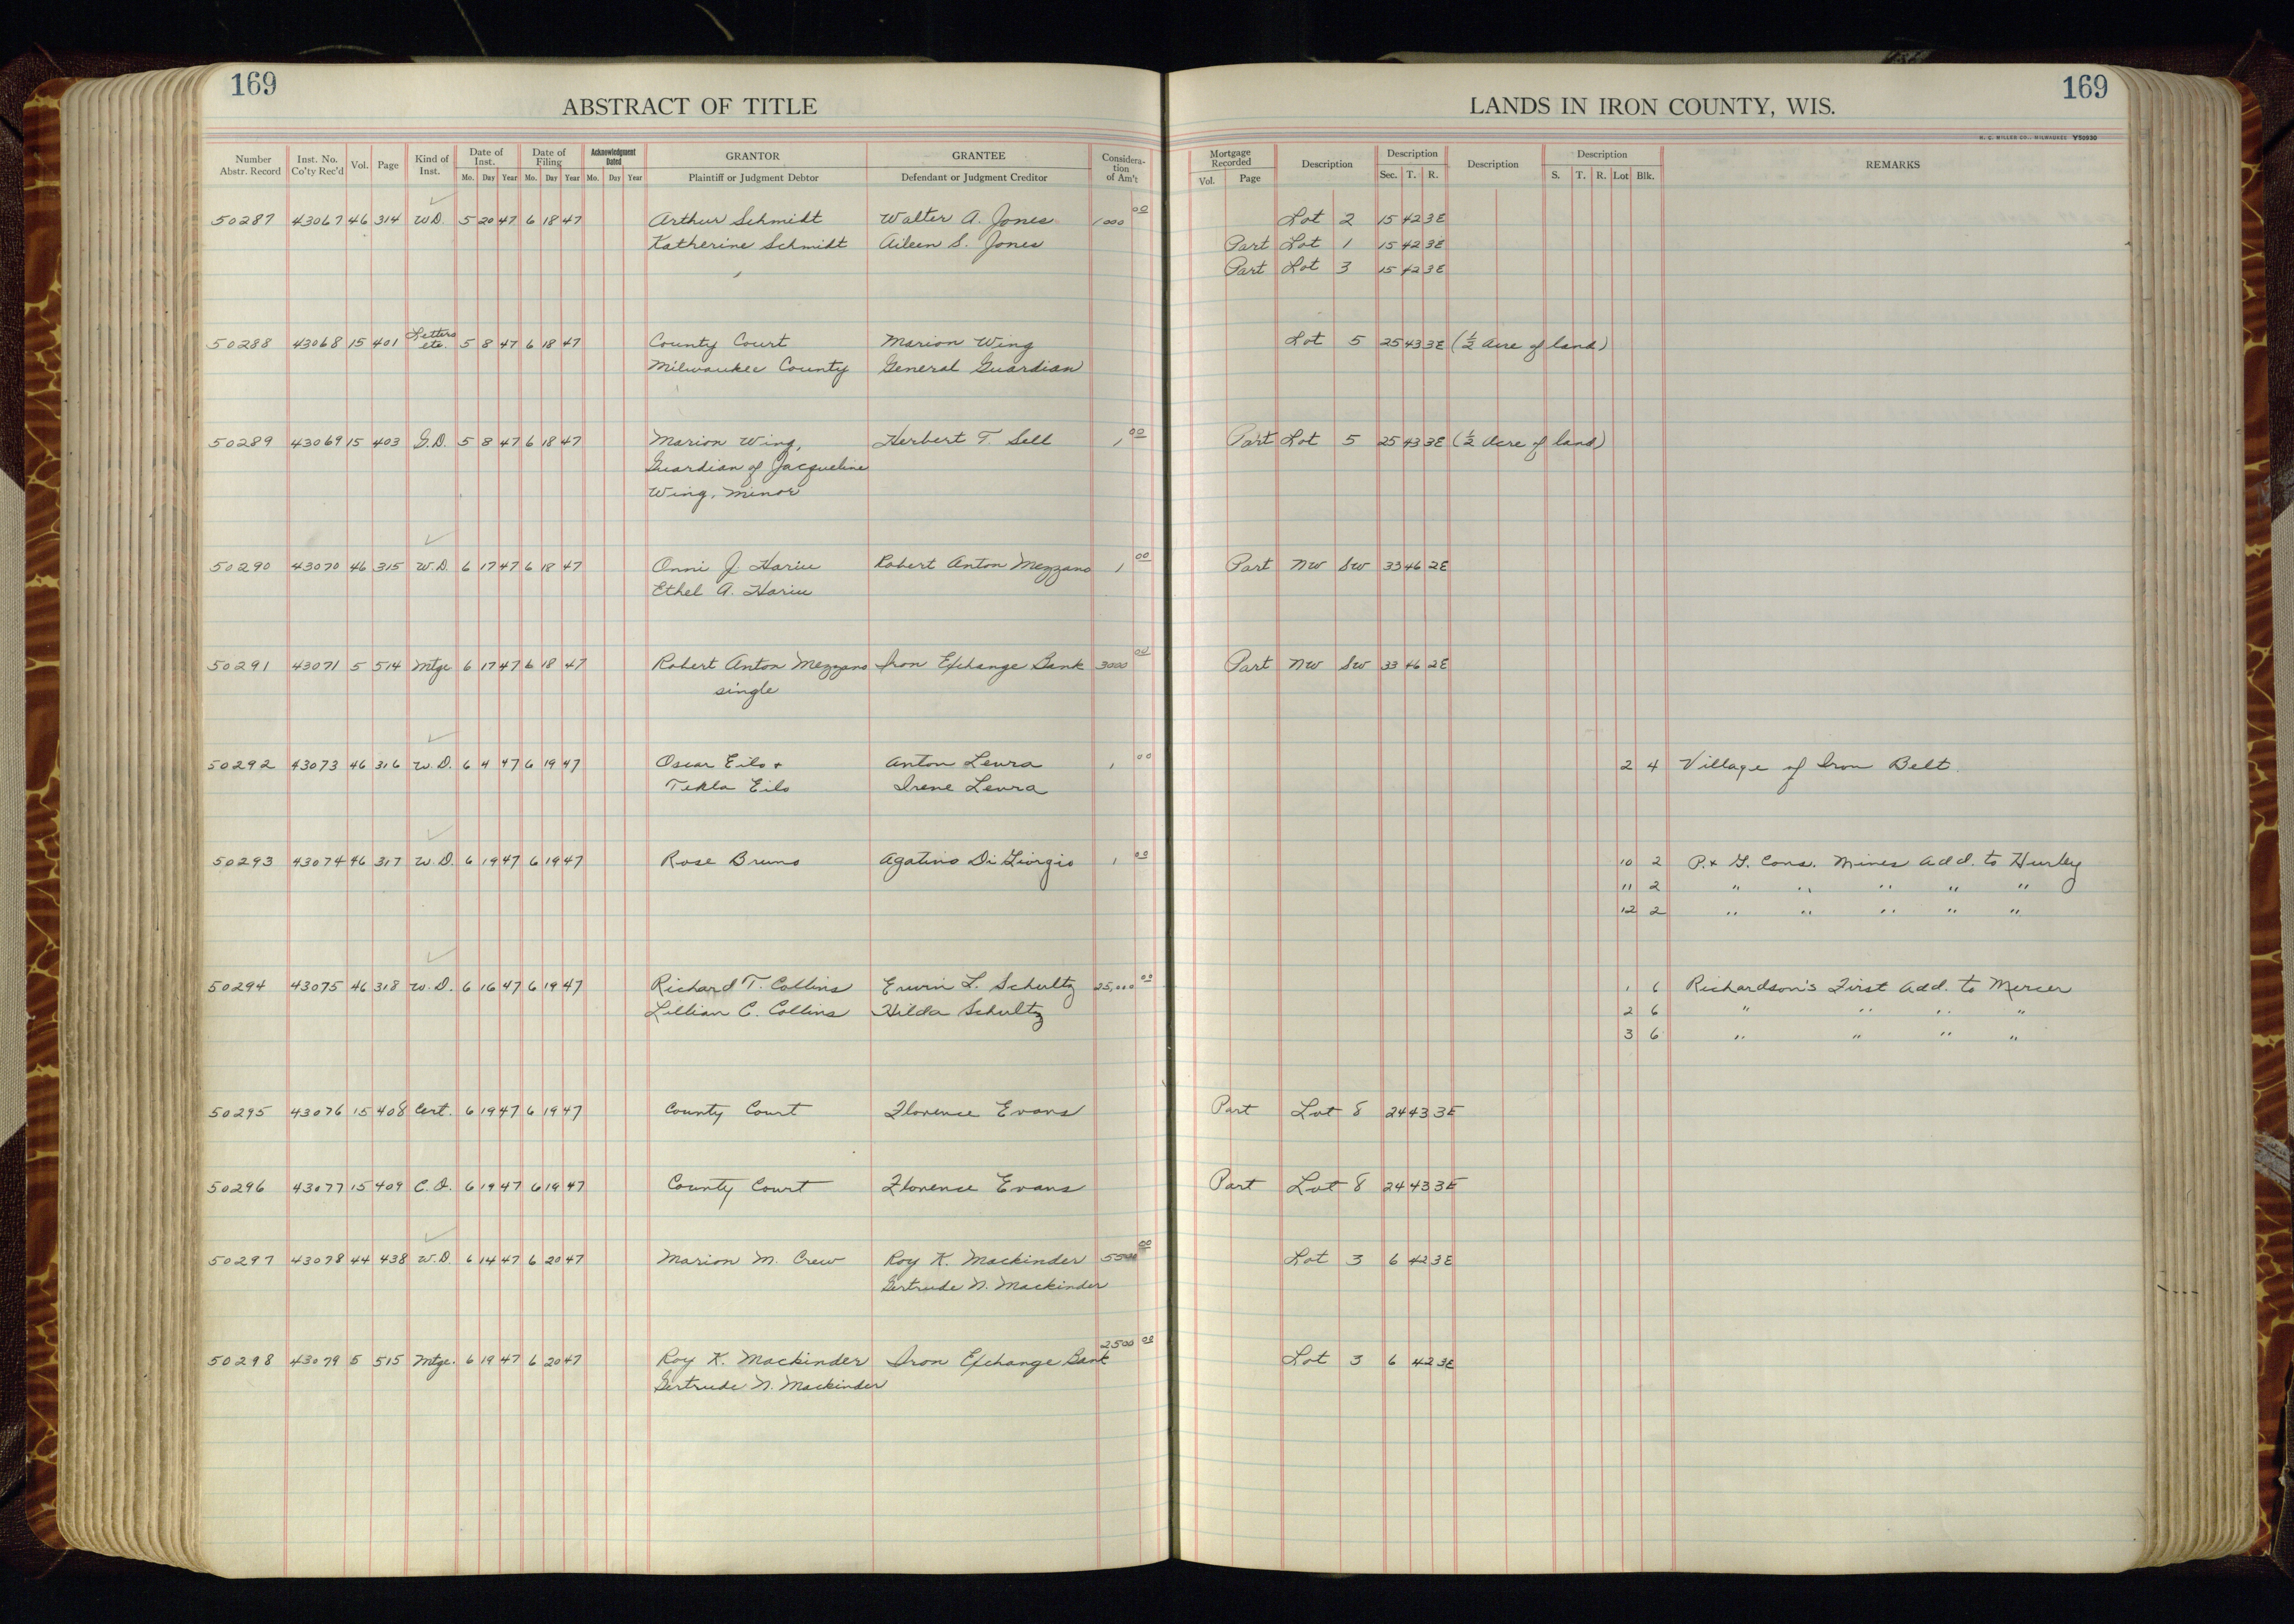 169
169
ABSTRACT OF TITLE
LANDS IN IRON COUNTY, WIS.
H. C. MILLER CO., MILWAUKEE Y50930
Number Abstr. Record Inst. No. Co'ty Rec'd Vol. Page Kind of Inst. Date of Inst. Mo. Day Year Date of Filing Mo. Day Year Acknowledgment Dated Mo. Day Year GRANTOR Plaintiff or Judgment Debtor GRANTEE Defendant or Judgment Creditor Consideration of Am't Mortgage Recorded Vol. Page Description Description Sec. T. R. Description Description S. T. R. Lot Blk. REMARKS
50287 43067 46 314 W.D. 5 20 47 6 18 47 Arthur Schmidt Walter A. Jones 1000 00 Lot 2 15 42 3E
Katherine Schmidt Aileen S. Jones Part Lot 1 15 42 3E
Part Lot 3 15 42 3E
50288 43068 15 401 Letters etc. 5 8 47 6 18 47 County Court Marion Wing Lot 5 25 43 3E (½ Acre of land)
Milwaukee County General Guardian
50289 43069 15 403 G.D. 5 8 47 6 18 47 Marion Wing, Herbert T. Sell 1 00 Part Lot 5 25 43 3E (½ Acre of land)
Guardian of Jacqueline
Wing, minor
50290 43070 46 315 W.D. 6 17 47 6 18 47 Onni J. Hariu Robert Anton Mezzano 1 00 Part NW SW 33 46 2E
Ethel A. Hariu
50291 43071 5 514 Mtge 6 17 47 6 18 47 Robert Anton Mezzano Iron Exchange Bank 3000 00 Part NW SW 33 46 2E
single
50292 43073 46 316 W.D. 6 4 47 6 19 47 Oscar Eilo + Anton Leura 1 00 2 4 Village of Iron Belt.
Tekla Eilo Irene Leura
50293 43074 46 317 W.D. 6 19 47 6 19 47 Rose Bruno Agatino Di Giorgio 1 00 10 2 P. + G. Cons. Mines Add. to Hurley
11 2 " " " " "
12 2 " " " " "
50294 43075 46 318 W.D. 6 16 47 6 19 47 Richard T. Collins Erwin L. Schultz 25,000 00 1 6 Richardson's First Add. to Mercer
Lillian C. Collins Hilda Schultz 2 6 " " " "
3 6 " " " "
50295 43076 15 408 Cert. 6 19 47 6 19 47 County Court Florence Evans Part Lot 8 24 43 3E
50296 43077 15 409 C.O. 6 19 47 6 19 47 County Court Florence Evans Part Lot 8 24 43 3E
50297 43078 44 438 W.D. 6 14 47 6 20 47 Marion M. Crew Roy K. Mackinder 5500 00 Lot 3 6 42 3E
Gertrude N. Mackinder
50298 43079 5 515 Mtge. 6 19 47 6 20 47 Roy K. Mackinder Iron Exchange Bank 2500 00 Lot 3 6 42 3E
Gertrude N. Mackinder